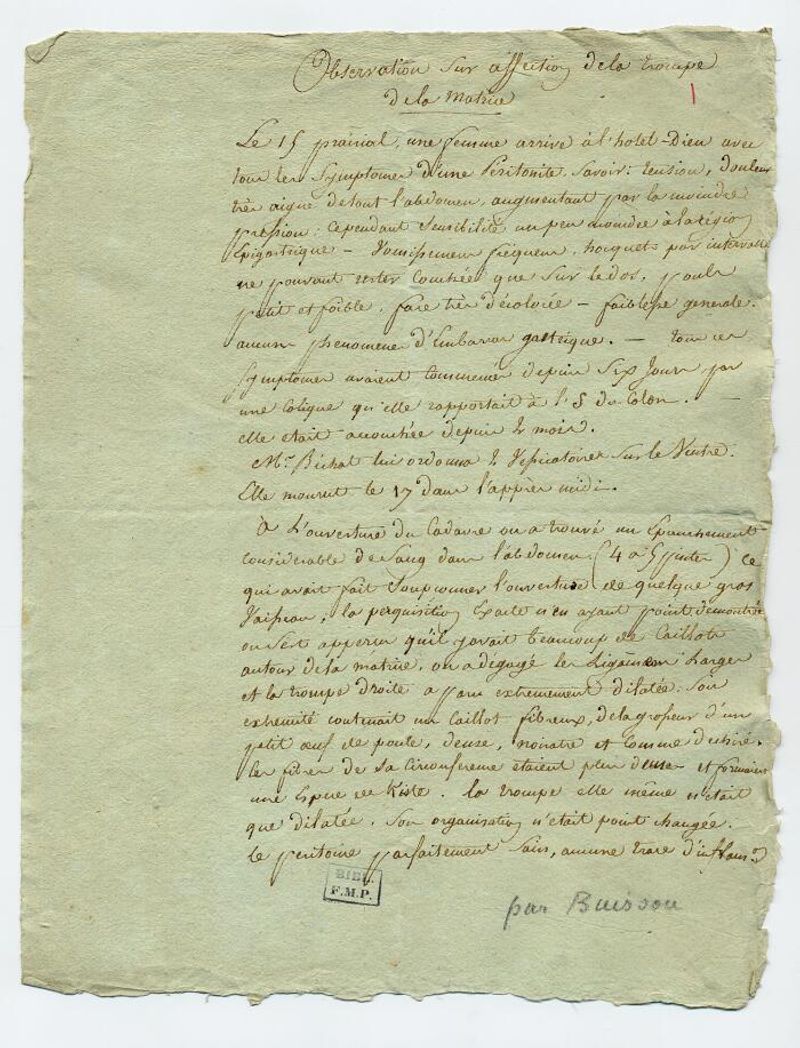 Observation sur affection de la trompe
de la Matrice
Le 15 prairial, une femme arrive à l'hotel-Dieu avec
tous les Symptomes d'une Peritonite. Savoir: tension, douleur
très aigue de tout l'abdomen, augmentant par la moindre
pression; cependant Sensibilité un peu moindre à la région
Epigastrique – Vomissemens fréquens, hoquets par intervalle
ne pouvant rester Couchée que sur le dos, pouls
petit et foible, face très décolorée – faiblesse generale.
aucuns phenomenes d'Embarras gastrique. — tous ces
Symptomes avaient Commencés depuis Six Jours par
une Colique qu'elle rapportait à l'S du Colon. —
elle etait accouchée depuis 2 mois.
Mr. Bichat lui ordonna 2 Vesicatoires sur le Ventre.
Elle mourut le 17 dans l'apprès midi.
À l'ouverture du Cadavre on a trouvé un Epanchement
considerable de Sang dans l'abdomen (4 a 5 pintes) Ce
qui avait fait Soupconner l'ouverture de quelque gros
Vaisseau, la perquisition Exacte n'en ayant point demontrée
on s'est apperçu qu'il y avait beaucoup de Caillots
autour de la matrice, on a dégagé les Ligamens Larges
et la trompe droite a paru extremement dilatée. Son
extremité contenait un Caillot fibreux, de la grosseur d'un
petit œuf de poule, dense, noiratre et comme dechiré.
les fibres de sa Circonference etaient plus denses et formaient
une Espece de Kiste. la trompe elle même n'était
que dilatée. Son organisation n'était point changée.
le peritoine parfaitement Sain, aucune trace d'inflamon
BIBL.
F.M.P.
par Buisson